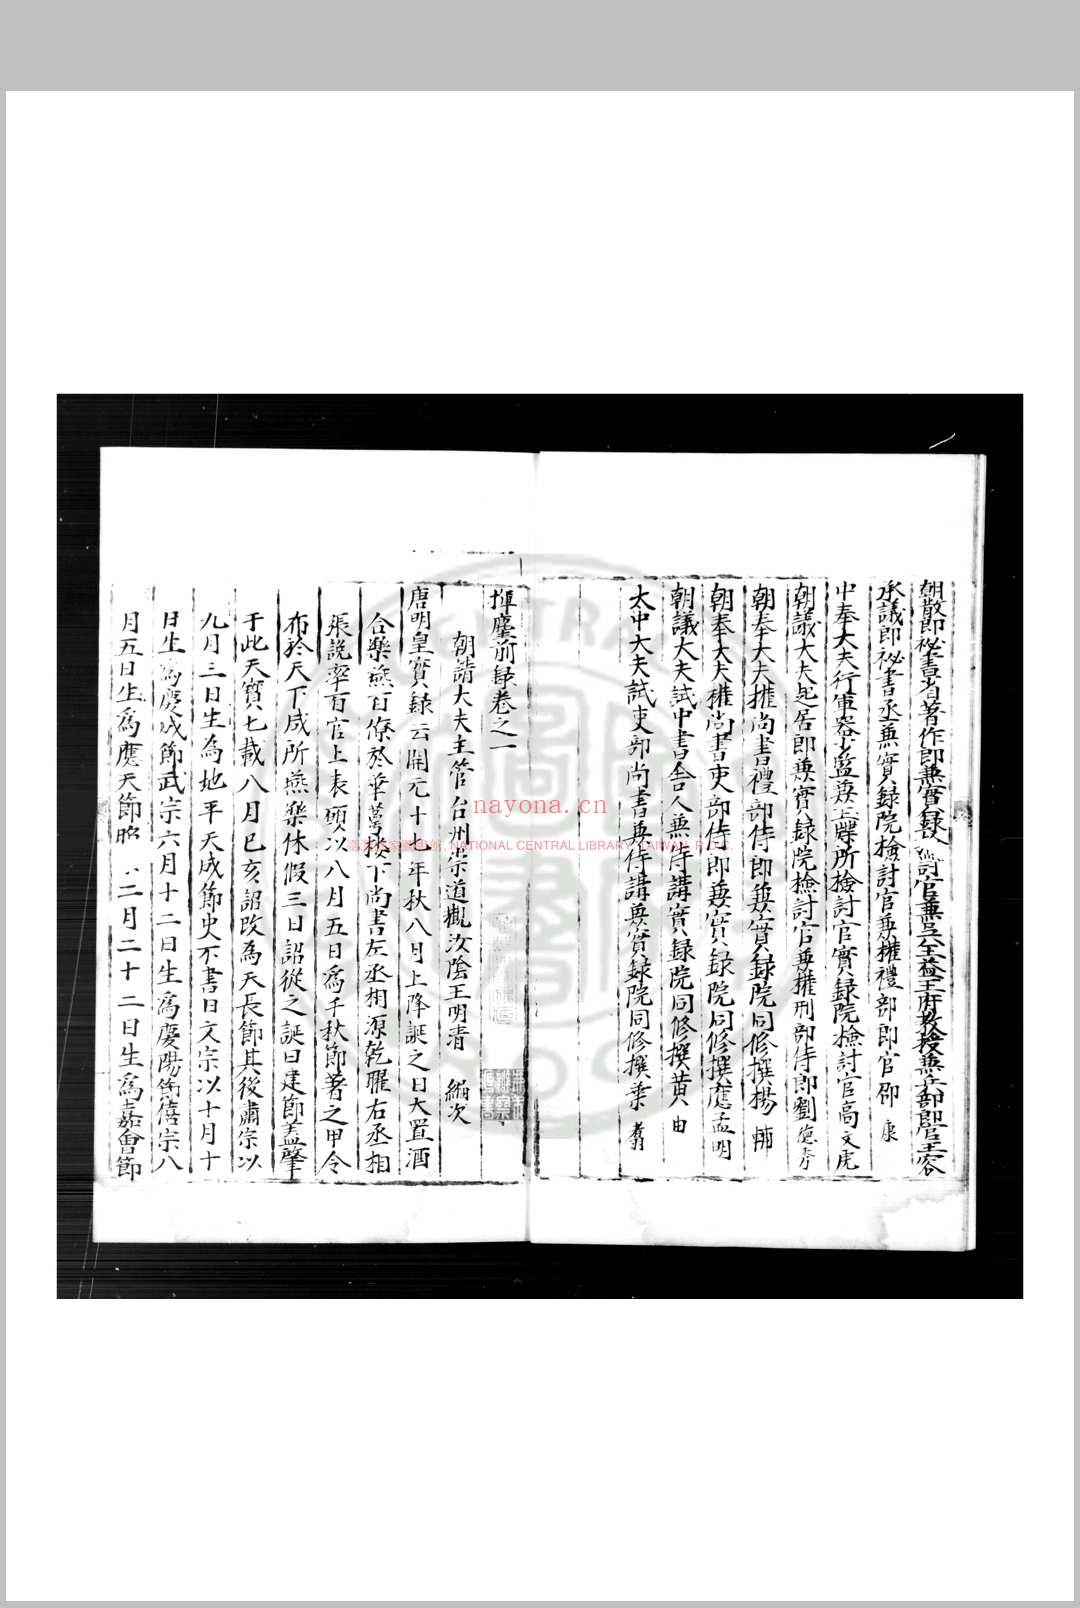 朝散郎秘書省著作郎兼實錄院檢討官兼吳益王府教授兼兵部郎官王容
承議郎祕書丞兼實錄院檢討官兼權禮部郎官邵 康
中奉大夫行軍器少監兼玉牒所檢討官實錄院檢討官高文虎
朝議大夫起居郎兼實錄院檢討官兼權刑部侍郎劉德秀
朝奉大夫權尚書禮部侍郎兼實錄院同修撰楊 輔
朝奉大夫權尚書吏部侍郎兼實錄院同修撰應孟明
朝議大夫試中書舍人兼侍講實錄院同修撰黃 由
太中大夫試吏部尚書兼侍講兼實錄院同修撰葉 翥
揮麈前錄卷之一
朝請大夫主管台州崇道觀汝陰王明清 編次
唐明皇實錄云開元十七年秋八月上降誕之日大置酒
合樂燕百僚於華萼樓下尚書左丞相源乾曜右丞相
張說率百官上表願以八月五日爲千秋節著之甲令
布於天下咸所燕樂休假三日詔從之誕日建節蓋肇
于此天寶七載八月己亥詔改為天長節其後肅宗以
九月三日生為地平天成節史不書日文宗以十月十
日生爲慶成節武宗六月十二日生爲慶陽節僖宗八
月五日生爲應天節昭 二月二十二日生爲嘉會節
nayona.cn
NATIONAL CENTRAL LIBRARY, TAIWAN, R.O.C.